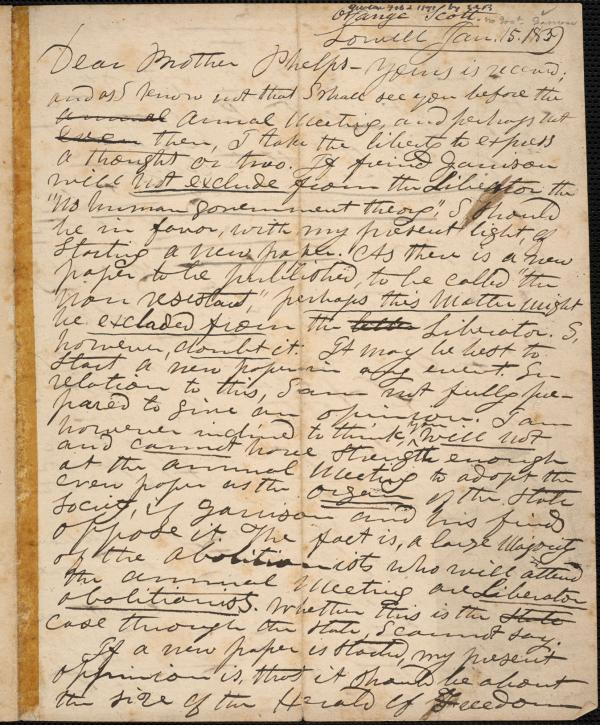 Orange Scott
Lowell Jan. 15. 1839
Dear Brother Phelps - Yours is received;
and as I know not that I shall see you before the
annual Annual Meeting, and perhaps not
even then, I take the liberty to express
a thought or two. If friend Garrison
will not exclude from the Liberator the
"No human government theory", I should
be in favor, with my present light, of
starting a new paper. As there is a new
paper to be published, to be called "the
Non resistant," perhaps this matter might
be excluded from the Liberator. I,
however, doubt it. It may be best to
start a new paper in any event. In
relation to this, I am not fully pre-
pared to give an opinion. I am
however inclined to think, you will not
and cannot have strength enough
at the annual meeting to adopt the
even paper as the organ of the State
Society, if Garrison and his friends
oppose it. The fact is, a large majority
of the abolitionists who will attend
the annual meeting are Liberator
abolitionists. Whether this is the State
case through the State, I cannot say.
If a new paper is started, my present
opinion is, that it should be about
the size of the Herald of Freedom